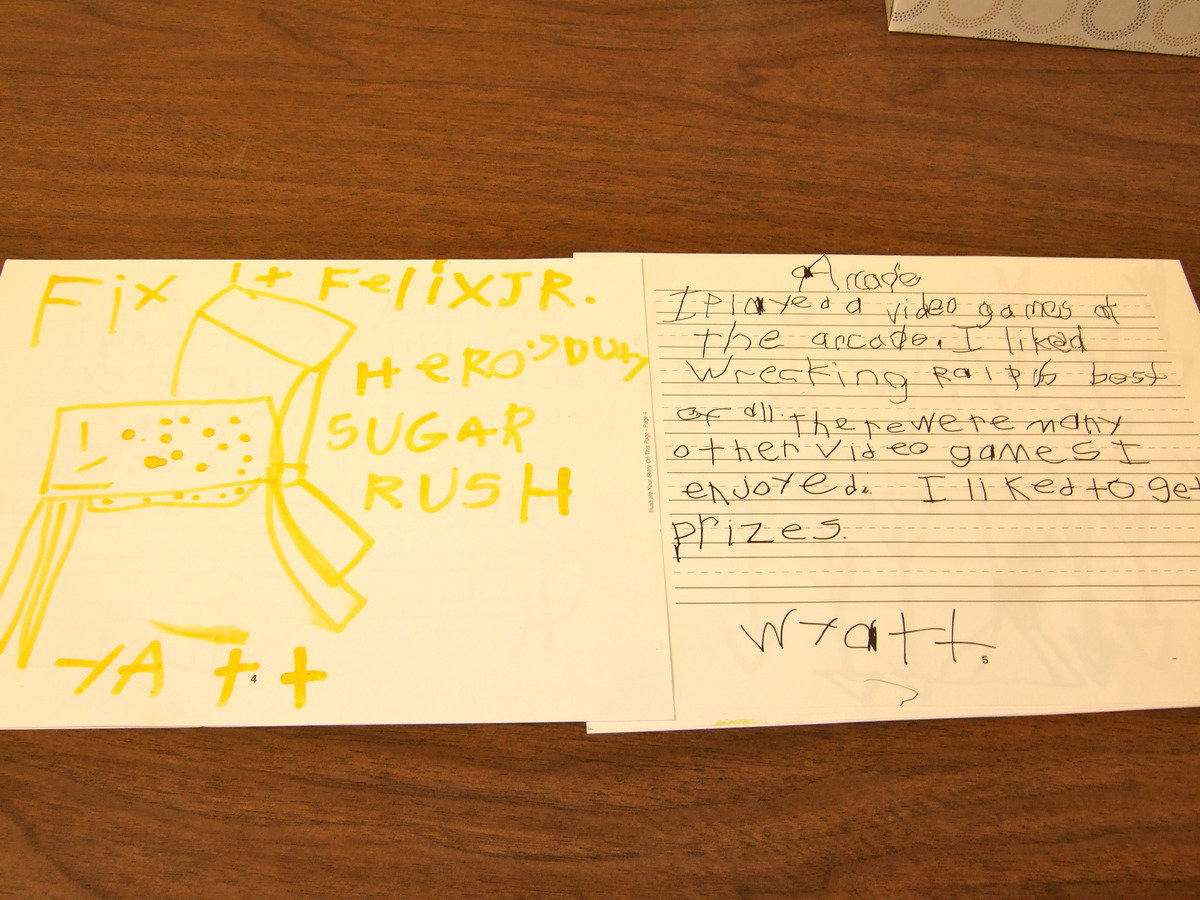 Fix it Felix JR.
HERO'S DUty
SUGAR
RUSH
YATT
4
Illustrate Your Story On This Page - Page 4
Arcade
I Played a video games at
the arcade. I liked
Wrecking Ralph best
of all. There were many
other video games I
enjoyed. I liked to get
prizes.
Wyatt
5